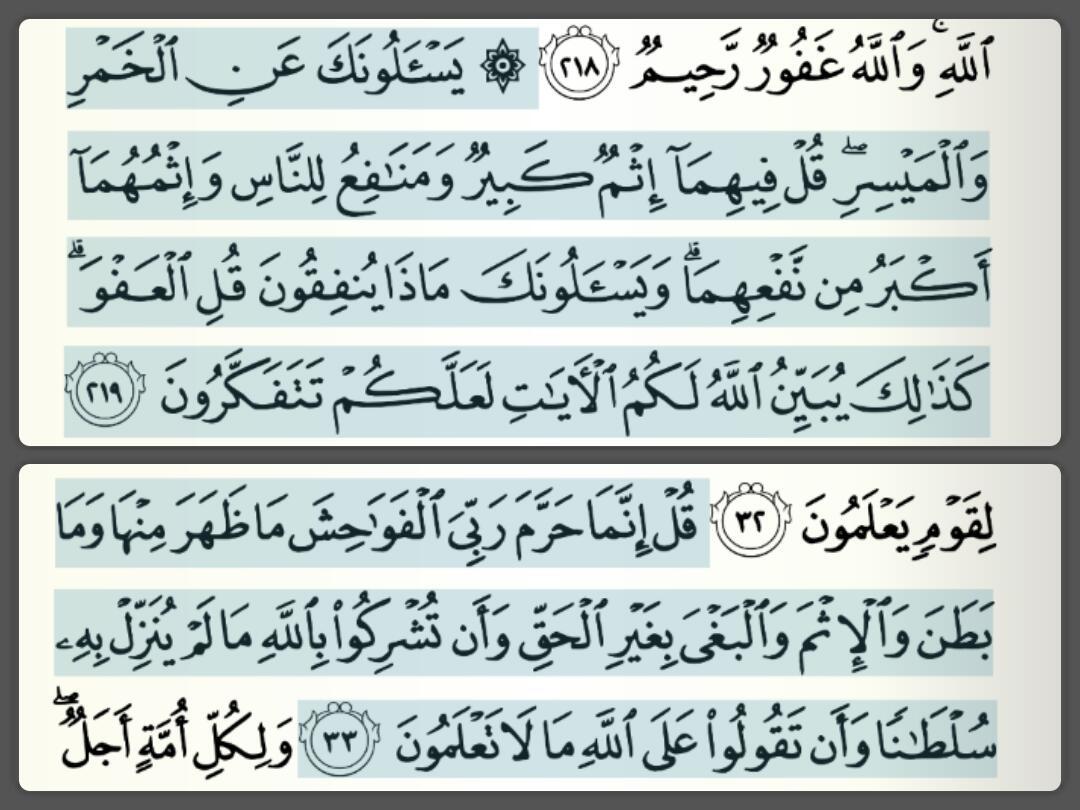 ٱللَّهِۚ وَٱللَّهُ غَفُورٞ رَّحِيمٞ ٢١٨ ۞ يَسۡـَٔلُونَكَ عَنِ ٱلۡخَمۡرِ
وَٱلۡمَيۡسِرِۖ قُلۡ فِيهِمَآ إِثۡمٞ كَبِيرٞ وَمَنَٰفِعُ لِلنَّاسِ وَإِثۡمُهُمَآ
أَكۡبَرُ مِن نَّفۡعِهِمَاۗ وَيَسۡـَٔلُونَكَ مَاذَا يُنفِقُونَ قُلِ ٱلۡعَفۡوَۗ
كَذَٰلِكَ يُبَيِّنُ ٱللَّهُ لَكُمُ ٱلۡأٓيَٰتِ لَعَلَّكُمۡ تَتَفَكَّرُونَ ٢١٩
لِقَوۡمٖ يَعۡلَمُونَ ٣٢ قُلۡ إِنَّمَا حَرَّمَ رَبِّيَ ٱلۡفَوَٰحِشَ مَا ظَهَرَ مِنۡهَا وَمَا
بَطَنَ وَٱلۡإِثۡمَ وَٱلۡبَغۡيَ بِغَيۡرِ ٱلۡحَقِّ وَأَن تُشۡرِكُواْ بِٱللَّهِ مَا لَمۡ يُنَزِّلۡ بِهِۦ
سُلۡطَٰنٗا وَأَن تَقُولُواْ عَلَى ٱللَّهِ مَا لَا تَعۡلَمُونَ ٣٣ وَلِكُلِّ أُمَّةٍ أَجَلٞۖ